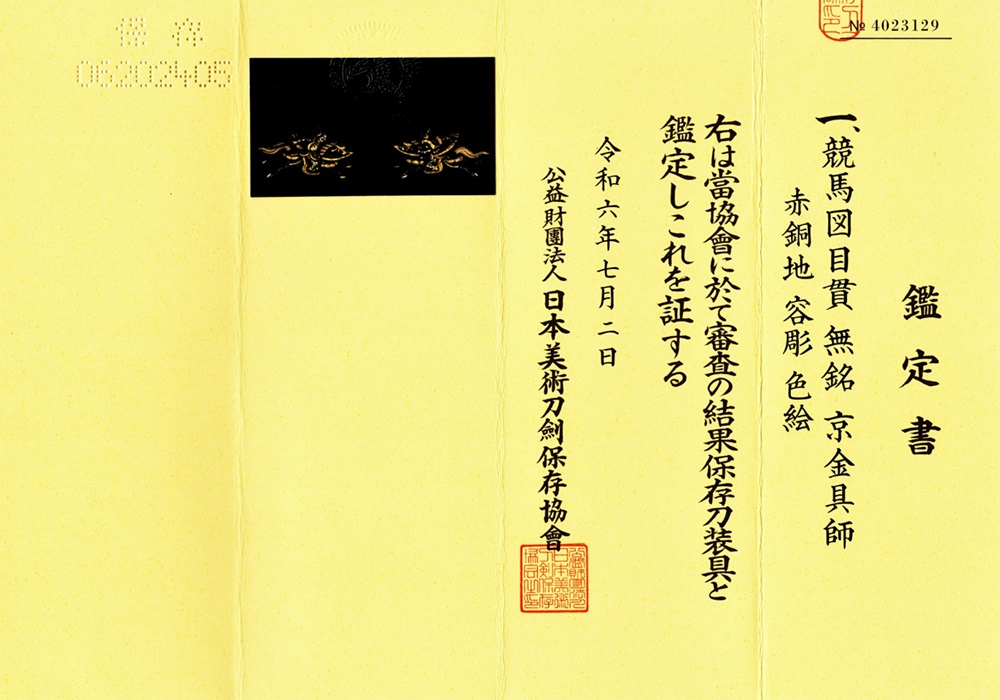 № 4023129
鑑定書
一、競馬図目貫 無銘 京金具師
赤銅地 容彫 色絵
右は當協會に於て審査の結果保存刀装具と
鑑定しこれを証する
令和六年七月二日
公益財團法人 日本美術刀劍保存協會
保存
06202405